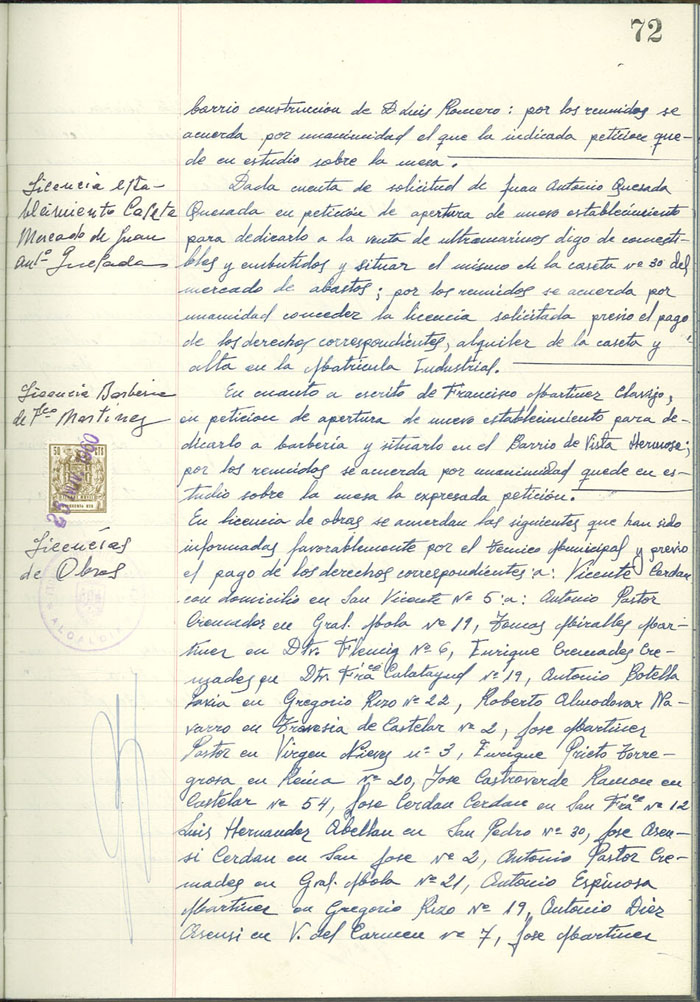 72
barrio construccion de D Luis Romero: por los reunidos se
acuerda por unanimidad el que la indicada peticion que-
de en estudio sobre la mesa.
Licencia esta-
blecimiento Caseta
Mercado de Juan
Antº Quesada
Dada cuenta de solicitud de Juan Antonio Quesada
Quesada en petición de apertura de nuevo establecimiento
para dedicarlo a la venta de ultramarinos digo de comesti-
bles y embutidos y situar el mismo de la caseta nº 30 del
mercado de abastos; por los reunidos se acuerda por
unanimidad conceder la licencia solicitada previo el pago
de los derechos correspondientes, alquiler de la caseta y
alta en la Matricula Industrial.
Licencia Barberia
de Fco Martinez
En cuanto a escrito de Francisco Martinez Clavijo,
en peticion de apertura de nuevo establecimiento para de-
dicarlo a barbería y situarlo en el Barrio de Vista Hermosa;
por los reunidos se acuerda por unanimidad quede en es-
tudio sobre la mesa la expresada petición.
50 CTS
1960
Licencias
de Obras
ALCALDIA
En licencia de obras se acuerdan las siguientes que han sido
informadas favorablemente por el Tecnico Municipal y previo
el pago de los derechos correspondientes: a: Vicente Cerdan
con domicilio en San Vicente Nº 5: a: Antonio Pastor
Cremades en Gral. Mola nº 19, Tomas Miralles Mar-
tinez en Dtr. Fleming Nº 6, Enrique Cremades Cre-
mades en Dtr. Frâco Calatayud nº 19, Antonio Botella
en Gregorio Rizo Nº 22, Roberto Almodovar Na-
varro en Travesia de Castelar nº 2, Jose Martinez
Pastor en Virgen Nieves nº 3, Enrique Prieto Torre-
grosa en Reina Nº 20, Jose Castroverde Ramon en
Castelar Nº 54, Jose Cerdan Cerdan en San Fraco nº 12
Luis Hernandez Abellan en San Pedro nº 30, Jose Asen-
si Cerdan en San Jose nº 2, Antonio Pastor Cre-
mades en Gral. Mola Nº 21, Antonio Espinosa
Martinez en Gregorio Rizo Nº 19, Antonio Diez
Asensi en V. del Carmen nº 7, Jose Martinez